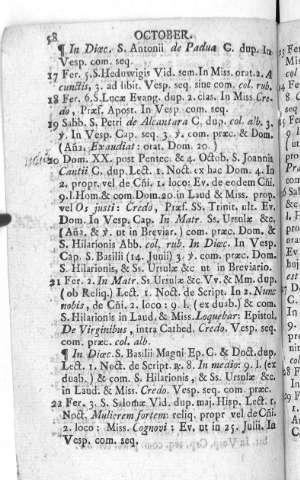 58 OCTOBER.
¶ In Diœc. S. Antonii de Padua C. dup. In
Vesp. com. seq.
17 Fer. 5. S. Heduwigis Vid. sem. In Miss. orat. 2. A
cunctis, 3. ad libit. Vesp. seq. sine com. col. rub.
18 Fer. 6. S. Lucæ Evang. dup. 2. clas. In Miss. Cre-
do, Præf. Apost. In Vesp. com. seq.
19 Sabb. S. Petri de Alcantara C. dup. col. alb. 3.
ỳ. In Vesp. Cap. seq. 3. ỳ. com. præc. & Dom.
(Añ2. Exaudiat: orat. Dom. 20.)
20 Dom. XX. post Pentec. & 4. Octob. S. Joannis
Cantii C. dup. Lect. 1. Noct. ex hac Dom. 4. In
2. propr. vel de Cñi. 1. loco: Ev. de eodem Cñi.
9. l. Hom. & com. Dom. 20. in Laud & Miss. prop.
vel Os justi: Credo, Præf. SS. Trinit. ult. Ev.
Dom. In Vesp. Cap. In Matr. Ss. Ursulæ &c.
(Añ2. & ỳ. ut in Breviar.) com. præc. Dom. &
S. Hilarionis Abb. col. rub. In Diœc. In Vesp.
Cap. S. Basilii (14. Junii) 3. ỳ. com. præc. Dom.
S. Hilarionis, & Ss. Ursulæ &c ut in Breviario.
21 Fer. 2. In Matr. Ss. Ursulæ &c. Vv. & Mm. dup.
(ob Reliq.) Lect. 1. Noct. de Script. In 2. Nunc
nobis, de Cñi. 2. loco: 9. l. (ex duab.) & com.
S. Hilarionis in Laud. & Miss. Loquebar: Epistol.
De Virginibus, intra Cathed. Credo. Vesp. seq.
com. præc. col. alb.
¶ In Diœc. S. Basilii Magni Ep. C. & Doct. dup.
Lect. 1. Noct. de Script. & 8. In medio: 9. l. (ex
duab.) & com. S. Hilarionis, & Ss. Ursulæ &c.
in Laud. & Miss. Credo. Vesp. seq. com. præc.
22 Fer. 3. S. Salomæ Vid. dup. maj. Hisp. Lect. 1.
Noct. Mulierem fortem: reliq. propr vel de Cñi.
2. loco: Miss. Cognovi: Ev. ut in 25. Julii. In
Vesp. com. seq.